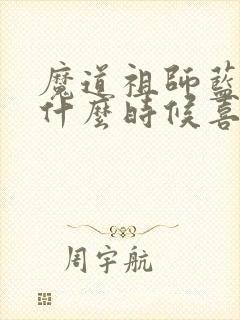 魔道祖師藍
什麼時候喜
周宇航